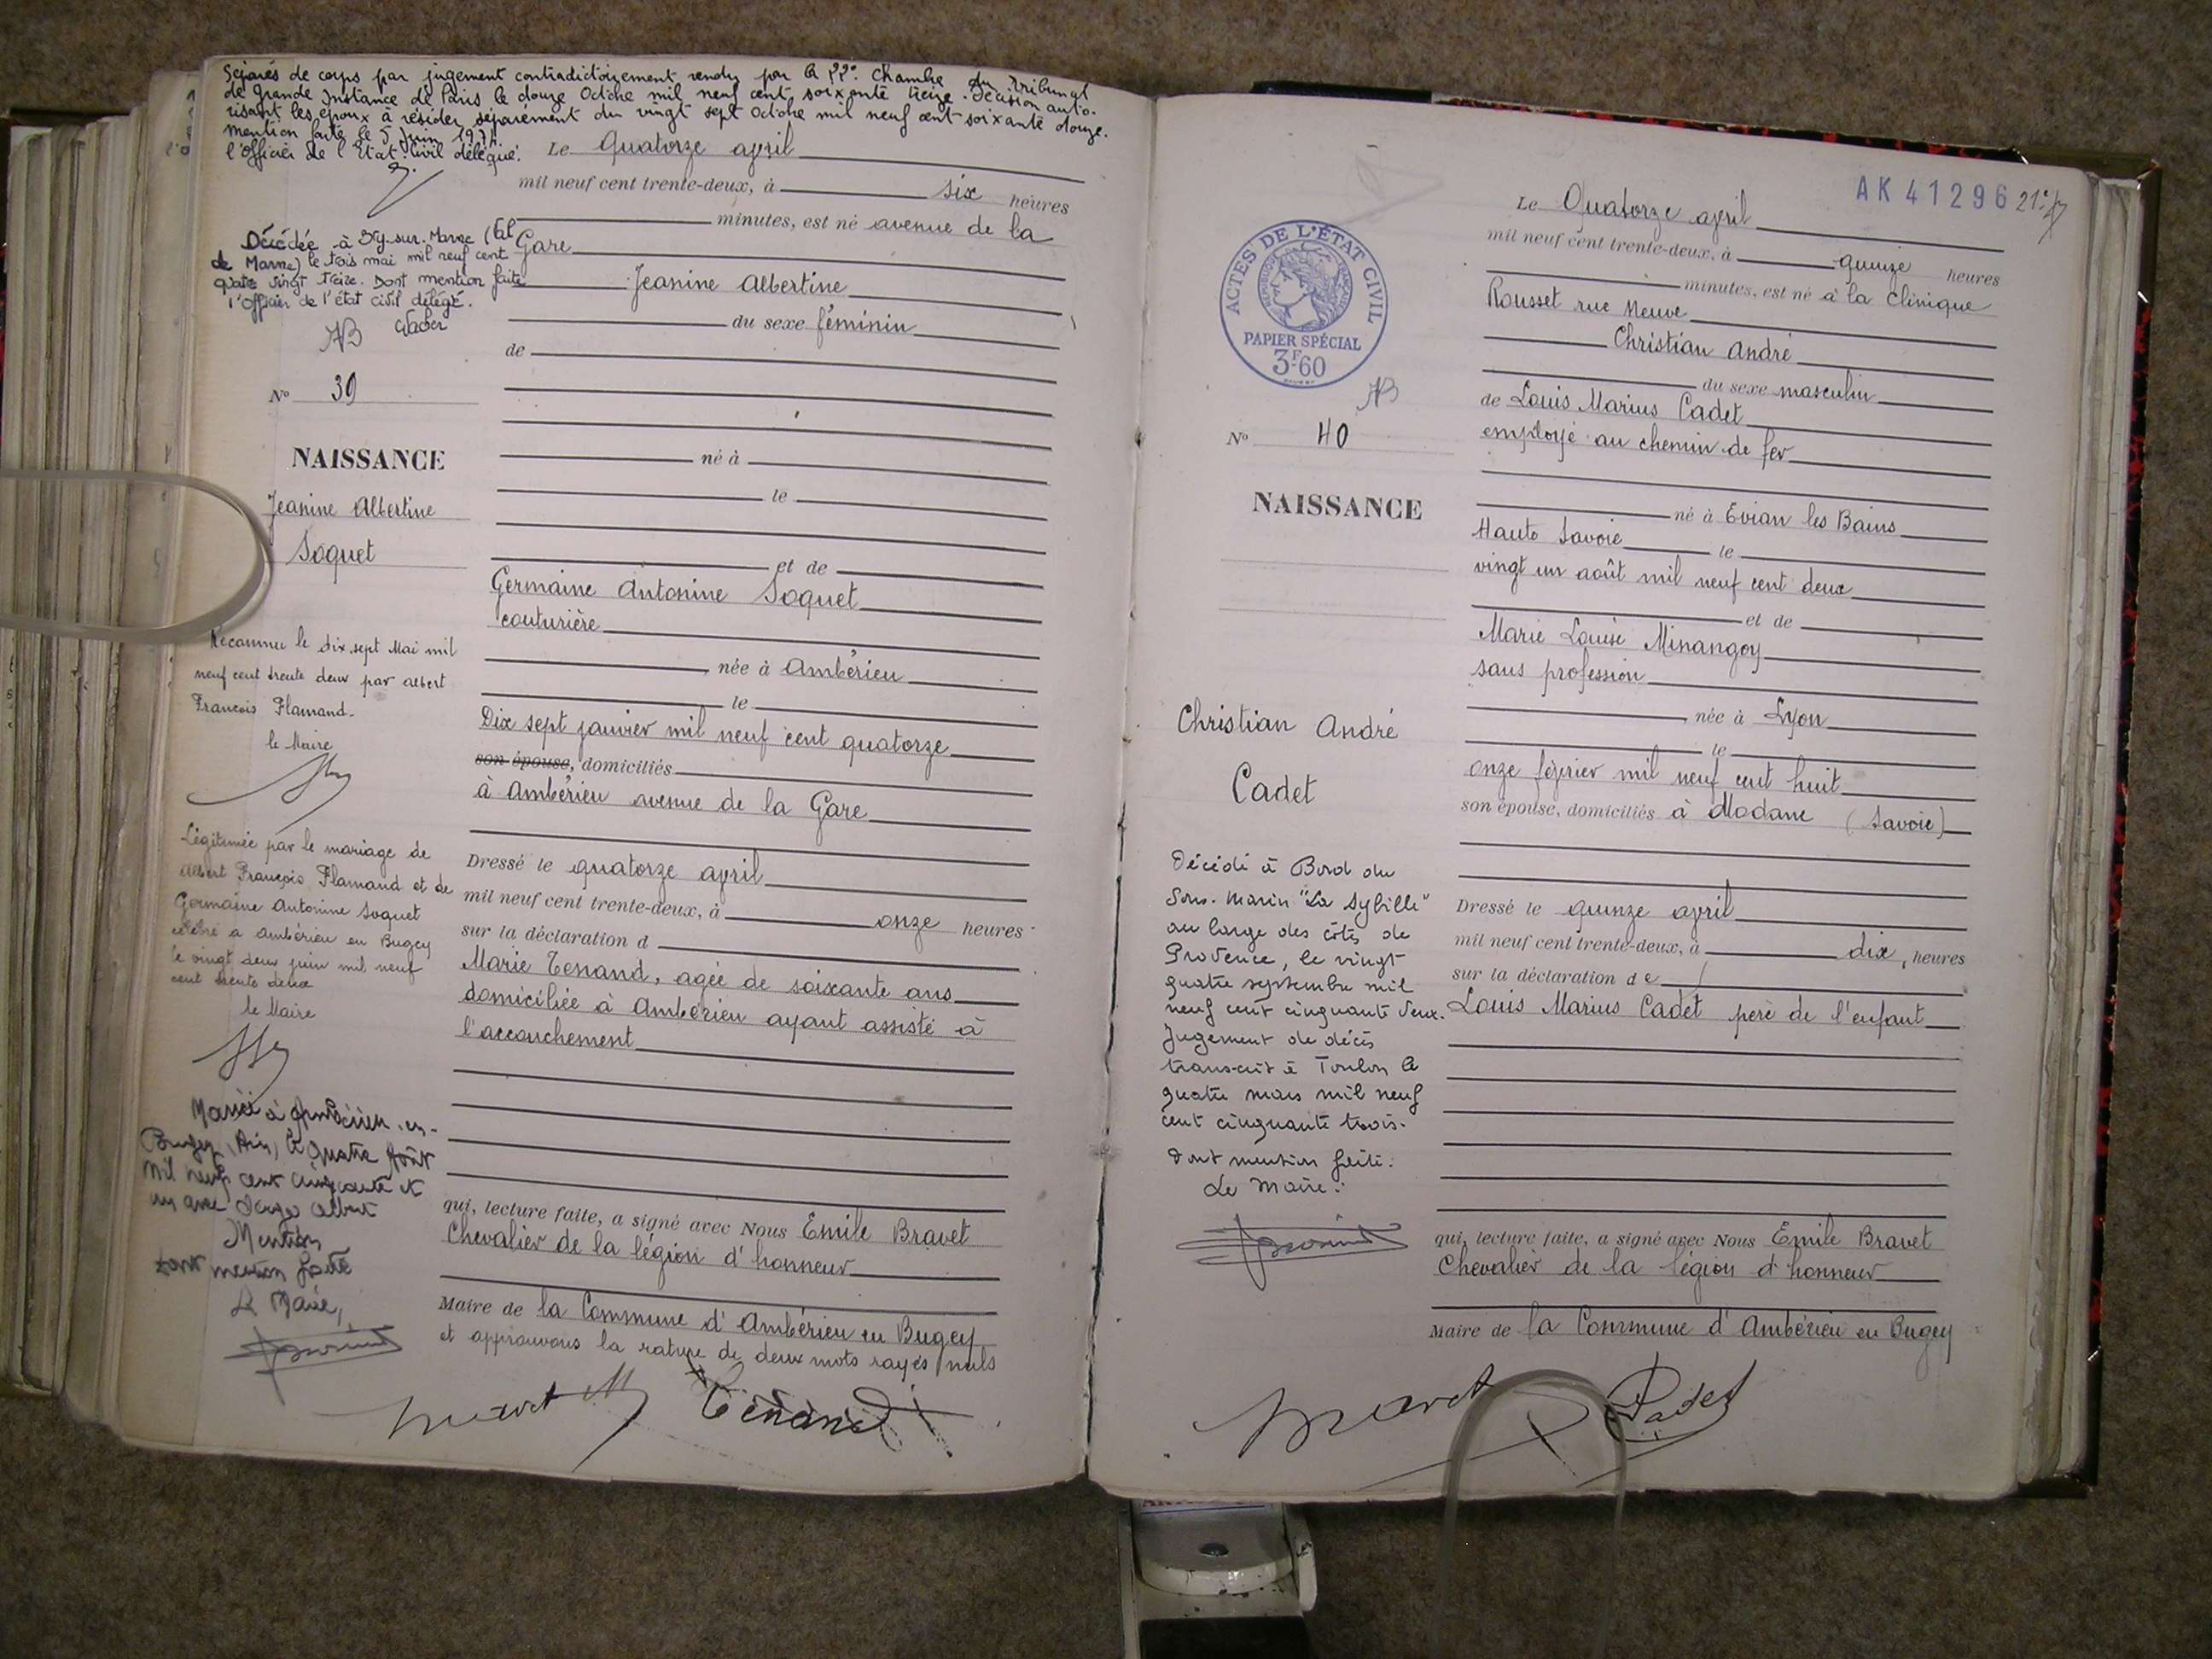 Séparés de corps par jugement contradictoirement rendu par la 22e Chambre du Tribunal
de Grande Instance de Paris le douze Octobre mil neuf cent soixante treize. Décision auto-
risant les époux à résider séparément du vingt sept Octobre mil neuf cent soixante douze.
Mention faite le 5 Juin 1974
l'Officier de l'Etat-Civil délégué.
Décédée à Bry-sur-Marne (Val
de Marne) le trois mai mil neuf cent
quatre vingt treize. Dont mention faite
l'Officier de l'état civil délégué.
N° 39
NAISSANCE
Jeanine Albertine
Soquet
Reconnue le dix sept Mai mil
neuf cent trente deux par Albert
François Flamand.
le Maire
Légitimée par le mariage de
Albert François Flamand et de
Germaine Antonine Soquet
célébré à Ambérieu en Bugey
le vingt deux juin mil neuf
cent trente deux
le Maire
Mariée à Ambérieu-en-
Bugey, Ain, le quatre Août
mil neuf cent cinquante et
un avec Serge Albert
Mention
dont mention faite
Le Maire,
Le Quatorze avril
mil neuf cent trente-deux, à six heures
minutes, est né avenue de la
Gare
Jeanine Albertine
du sexe féminin
de
né à
le
et de
Germaine Antonine Soquet
couturière
née à Ambérieu
le
Dix sept janvier mil neuf cent quatorze
son épouse, domiciliés
à Ambérieu avenue de la Gare
Dressé le quatorze avril
mil neuf cent trente-deux, à onze heures
sur la déclaration d
Marie Tenand, agée de soixante ans
domiciliée à Ambérieu ayant assisté à
l'accouchement
qui, lecture faite, a signé avec Nous Emile Bravet
Chevalier de la légion d'honneur
Maire de la Commune d'Ambérieu en Bugey
et approuvons la rature de deux mots rayés nuls
Bravet Tenand
AK 41296 21e
ACTES DE L'ÉTAT CIVIL
RÉPUBLIQUE FRANÇAISE
PAPIER SPÉCIAL
3F60
N° 40
NAISSANCE
Christian André
Cadet
Décédé à Bord du
Sous-Marin "La Sybille"
au large des côtes de
Provence, le vingt
quatre septembre mil
neuf cent cinquante deux.
Jugement de décès
transcrit à Toulon le
quatre mars mil neuf
cent cinquante trois.
Dont mention faite:
Le Maire:
Le Quatorze avril
mil neuf cent trente-deux, à quinze heures
minutes, est né à la Clinique
Rousset rue Neuve
Christian André
du sexe masculin
de Louis Marius Cadet
employé au chemin de fer
né à Evian les Bains
Haute Savoie le
vingt un août mil neuf cent deux
et de
Marie Louise Minangoy
sans profession
née à Lyon
le
onze février mil neuf cent huit
son épouse, domiciliés à Modane (Savoie)
Dressé le quinze avril
mil neuf cent trente-deux, à dix heures
sur la déclaration de
Louis Marius Cadet père de l'enfant
qui, lecture faite, a signé avec Nous Emile Bravet
Chevalier de la légion d'honneur
Maire de la Commune d'Ambérieu en Bugey
Bravet Cadet